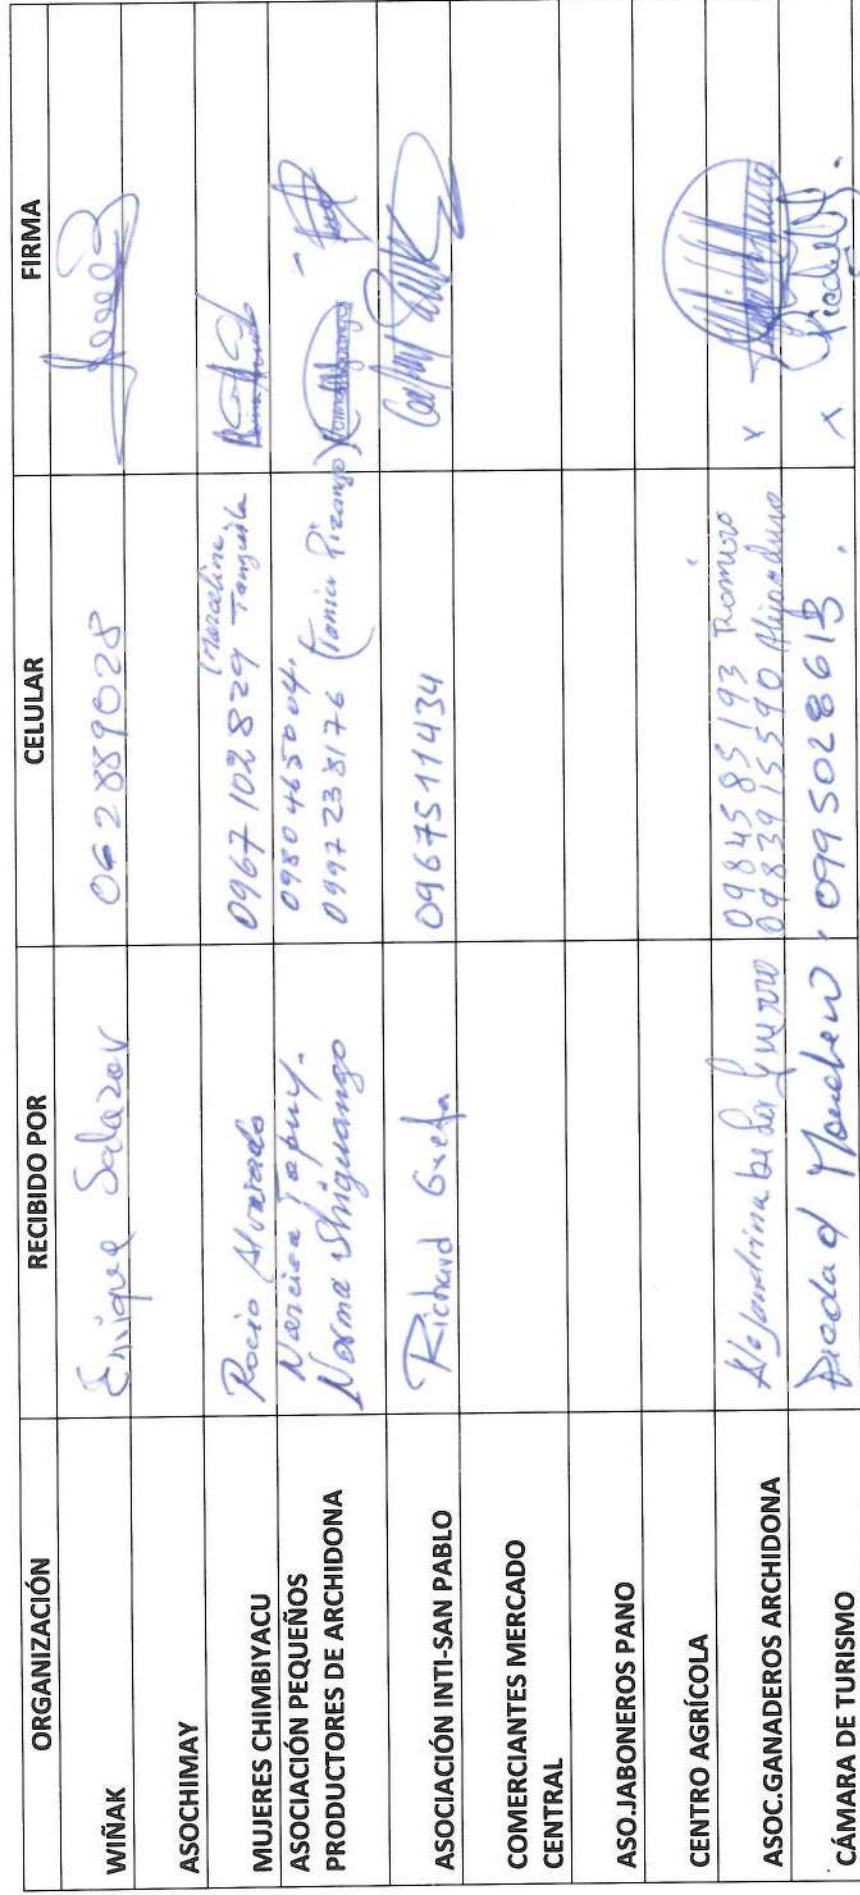 ORGANIZACIÓN RECIBIDO POR CELULAR FIRMA
WIÑAK Enrique Salazar 062889028
ASOCHIMAY
MUJERES CHIMBIYACU Rocio Alvarado 0967102829 Marceline Tanguila
ASOCIACIÓN PEQUEÑOS Narcisa Tapuy. 0980465004.
PRODUCTORES DE ARCHIDONA Norma Shiguango 0997238176 (Tania Pizango)
ASOCIACIÓN INTI-SAN PABLO Richard Grefa 0967511434
COMERCIANTES MERCADO
CENTRAL
ASO.JABONEROS PANO
CENTRO AGRÍCOLA
ASOC.GANADEROS ARCHIDONA Alejandrina De La 0984585193 Romero X
0983915590
CÁMARA DE TURISMO Piedad 0995028613. X